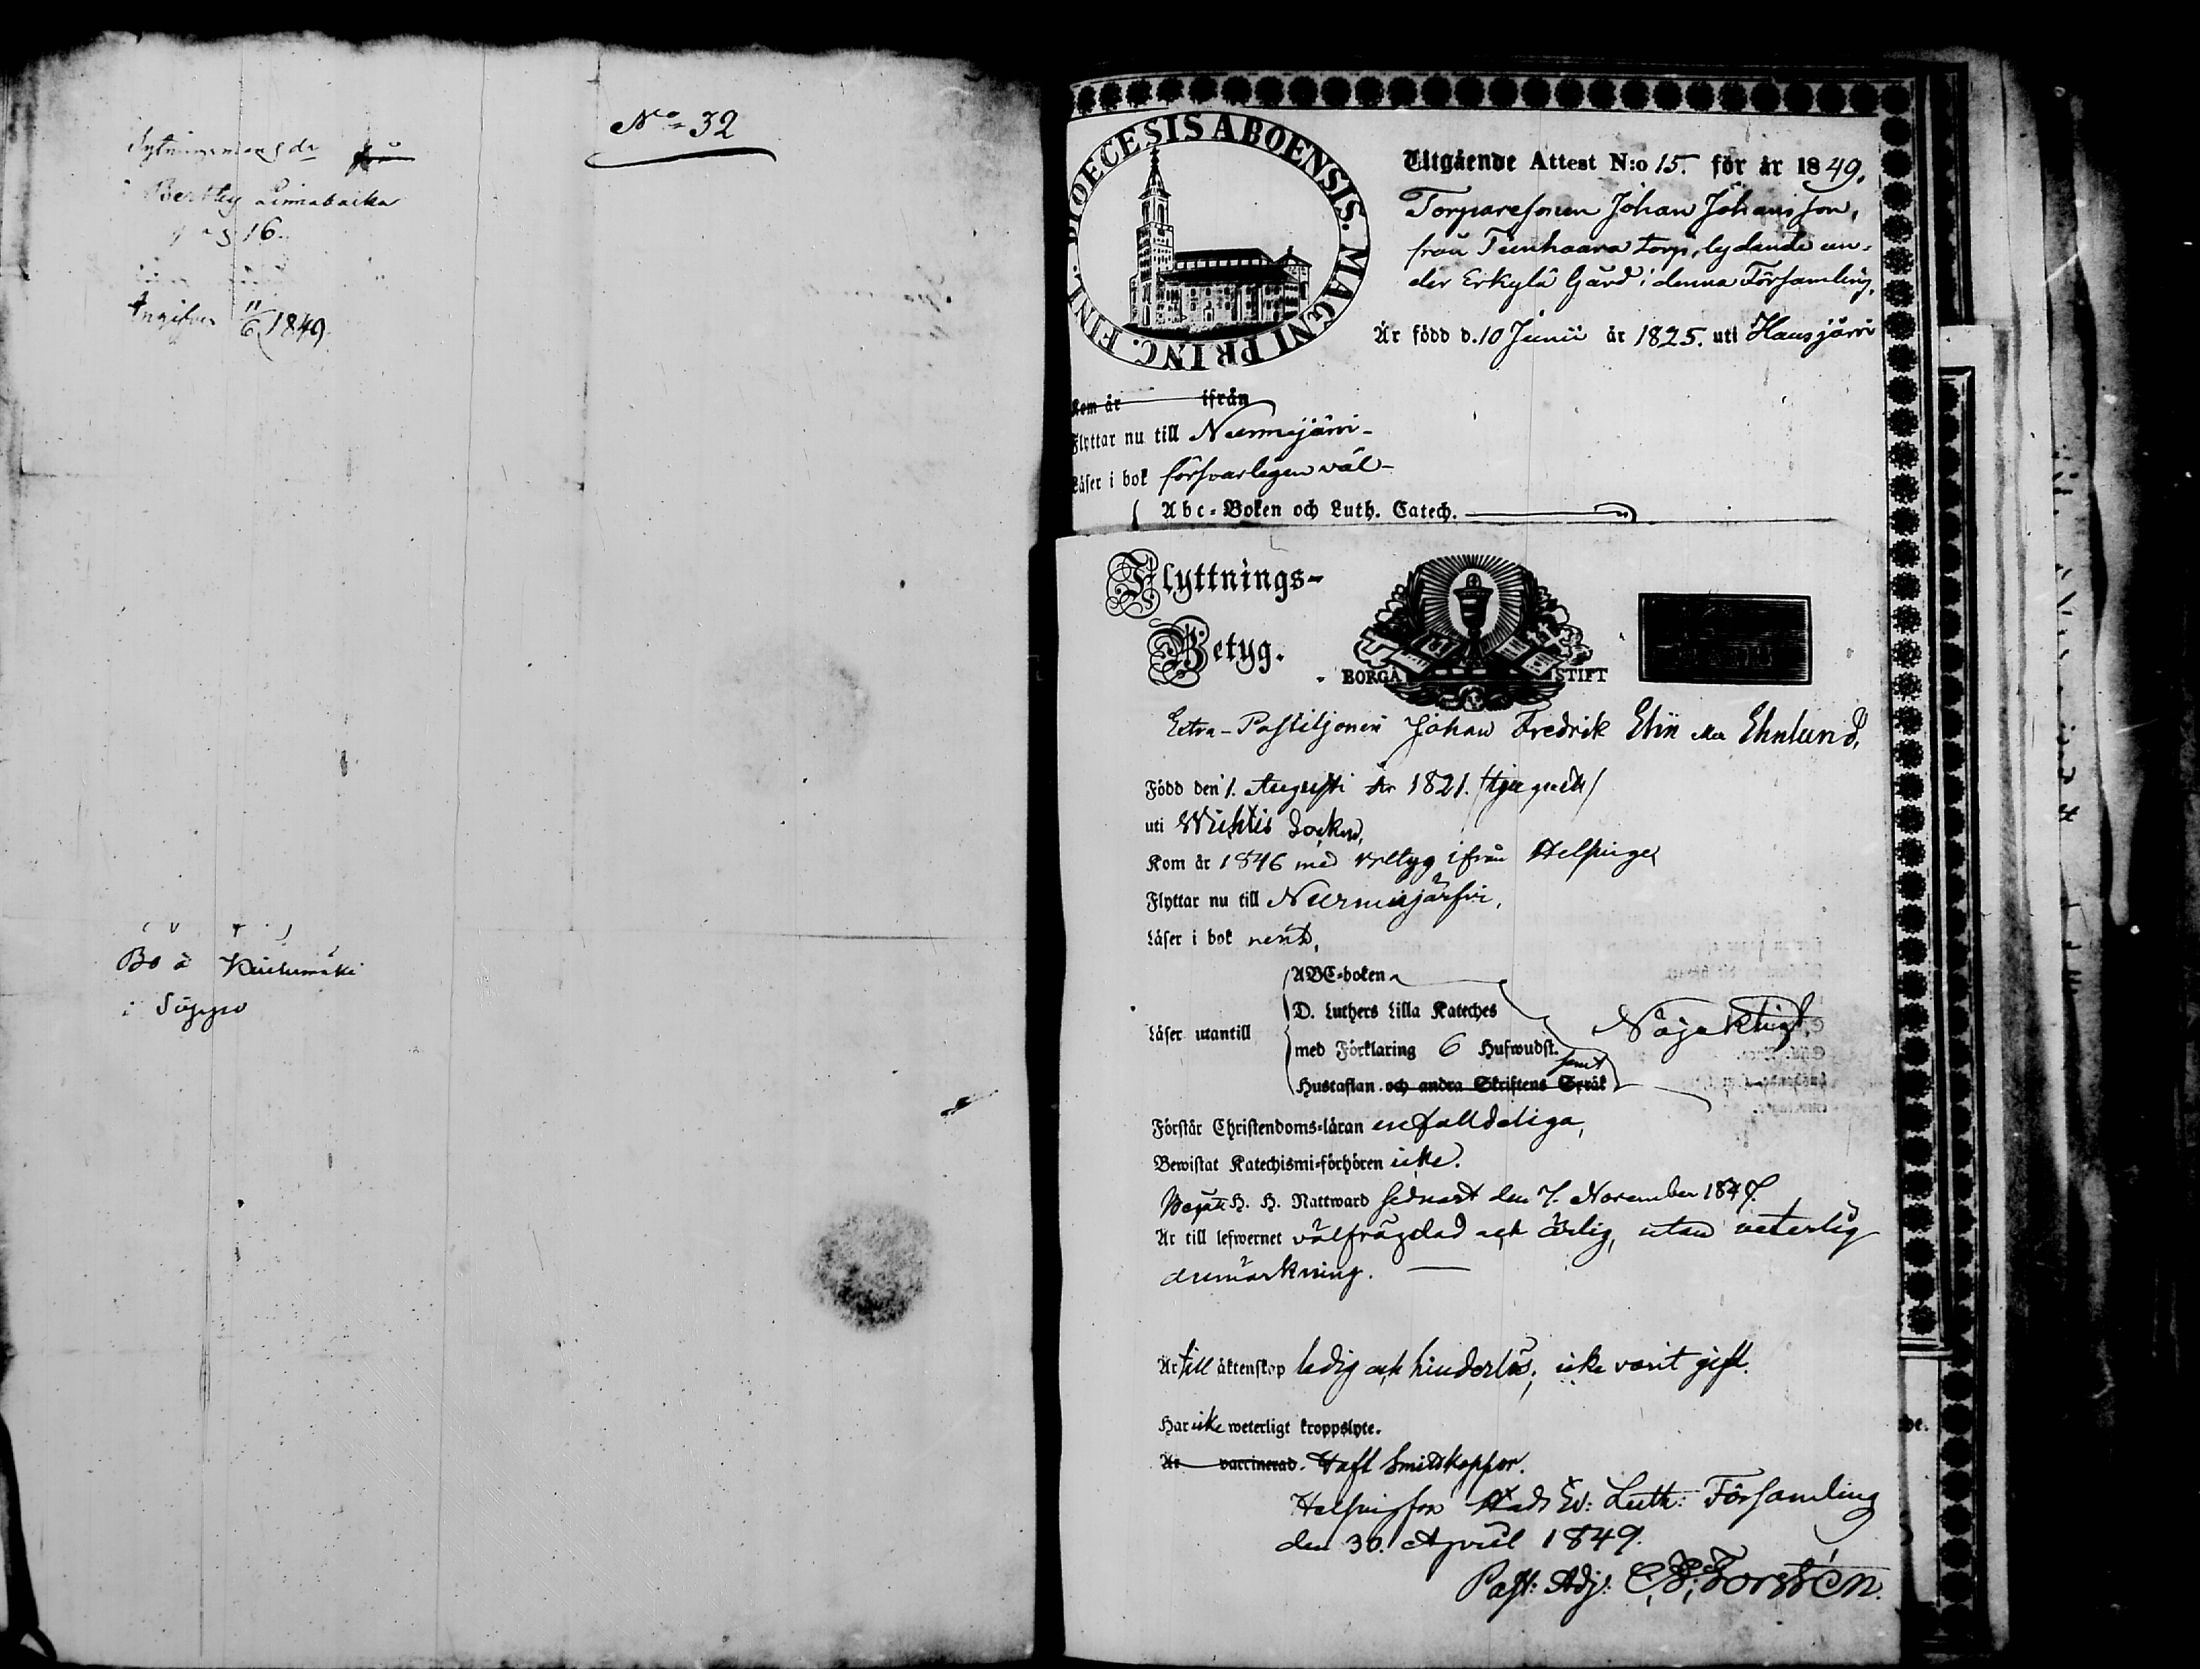 No 32
Bertby Linnabacka
pag 16
Angifven 11/6 1849
Bo à
i Sääxjo
DIOECESIS ABOENSIS. MAGNI PRINC. FINL.
Utgående Attest N:o 15. för år 1849.
Torparesonen Johan Johansson,
från Teenhaara torp, lydande un-
der Erkylä Gård i denna Församling,
Är född d. 10 Junii år 1825. uti Hausjärvi
Kom år ifrån
Flyttar nu till Nurmijärvi
Läser i bok försvarligen väl
Abc-Boken och Luth. Catech.
Flyttnings-
Betyg.
BORGÅ STIFT
Extra-Postiljonen Johan Fredrik Elin eller Ehnlund,
Född den 1. Augusti År 1821. /tjuguett/
uti Wichtis Socken,
Kom år 1846 med betyg ifrån Helsinge
Flyttar nu till Nurmijärfvi,
Läser i bok rent,
ABC-boken
D. Luthers Lilla Kateches
Läser utantill
med Förklaring 6 Hufwudst. samt
Hustaflan och andra Skriftens Språk
Nöjaktigt,
Förstår Christendoms-läran enfalldeliga,
Bewistat Katechismi-förhören icke.
Begått H. H. Nattward sednast den 7. November 1847.
Är till lefwernet välfrägdad och ärlig, utan veterlig
anmärkning.
Är till äktenskap ledig och hinderlös; icke varit gift.
Har icke weterligt kroppslyte.
Är vaccinerad. Haft Smittkoppor.
Helsingfors Stads Ev: Luth: Församling
den 30. April 1849.
Past: Adj: C. F. Forstén.